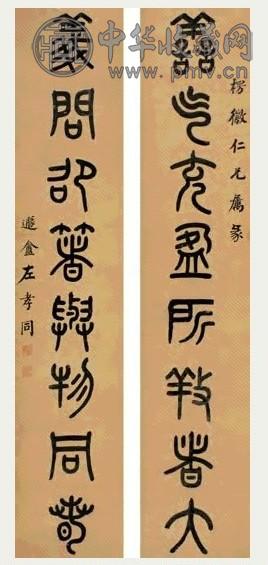 中华收藏网
www.pmv.cn
楞微仁兄屬篆
善气充盈所致者大
義問卲箸與物同春
遯盦左孝同